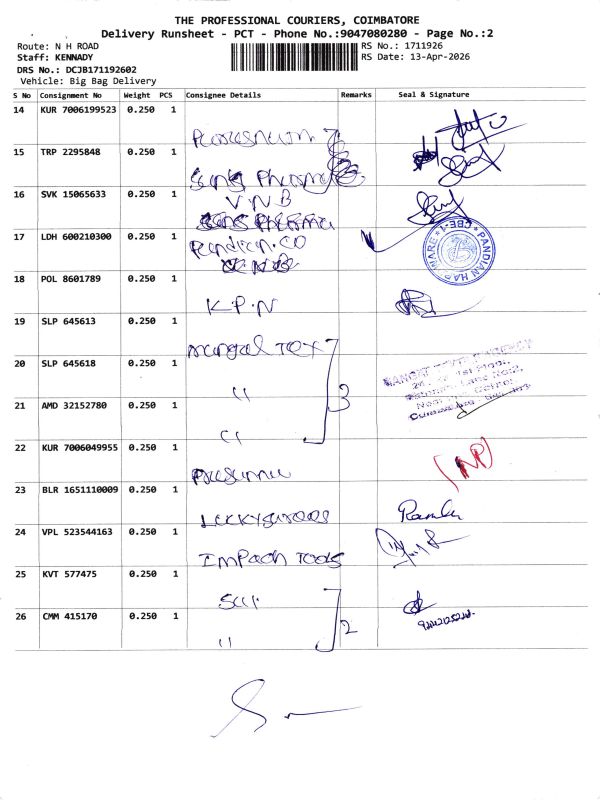 THE PROFESSIONAL COURIERS, COIMBATORE
Delivery Runsheet - PCT - Phone No.:9047080280 - Page No.:2
Route: N H ROAD
RS No.: 1711926
Staff: KENNADY
RS Date: 13-Apr-2026
DRS No.: DCJB171192602
Vehicle: Big Bag Delivery
S No Consignment No Weight PCS Consignee Details Remarks Seal & Signature
14 KUR 7006199523 0.250 1
15 TRP 2295848 0.250 1
Pharma
16 SVK 15065633 0.250 1
VNB
17 LDH 600210300 0.250 1
Pandian.CO
PANDIAN HARDWARE CBE-1
18 POL 8601789 0.250 1
K.P.N
19 SLP 645613 0.250 1
Mangal Tex
20 SLP 645618 0.250 1
"
3
21 AMD 32152780 0.250 1
"
22 KUR 7006049955 0.250 1
(NP)
23 BLR 1651110009 0.250 1
24 VPL 523544163 0.250 1
Tools
25 KVT 577475 0.250 1
26 CMM 415170 0.250 1
"
2